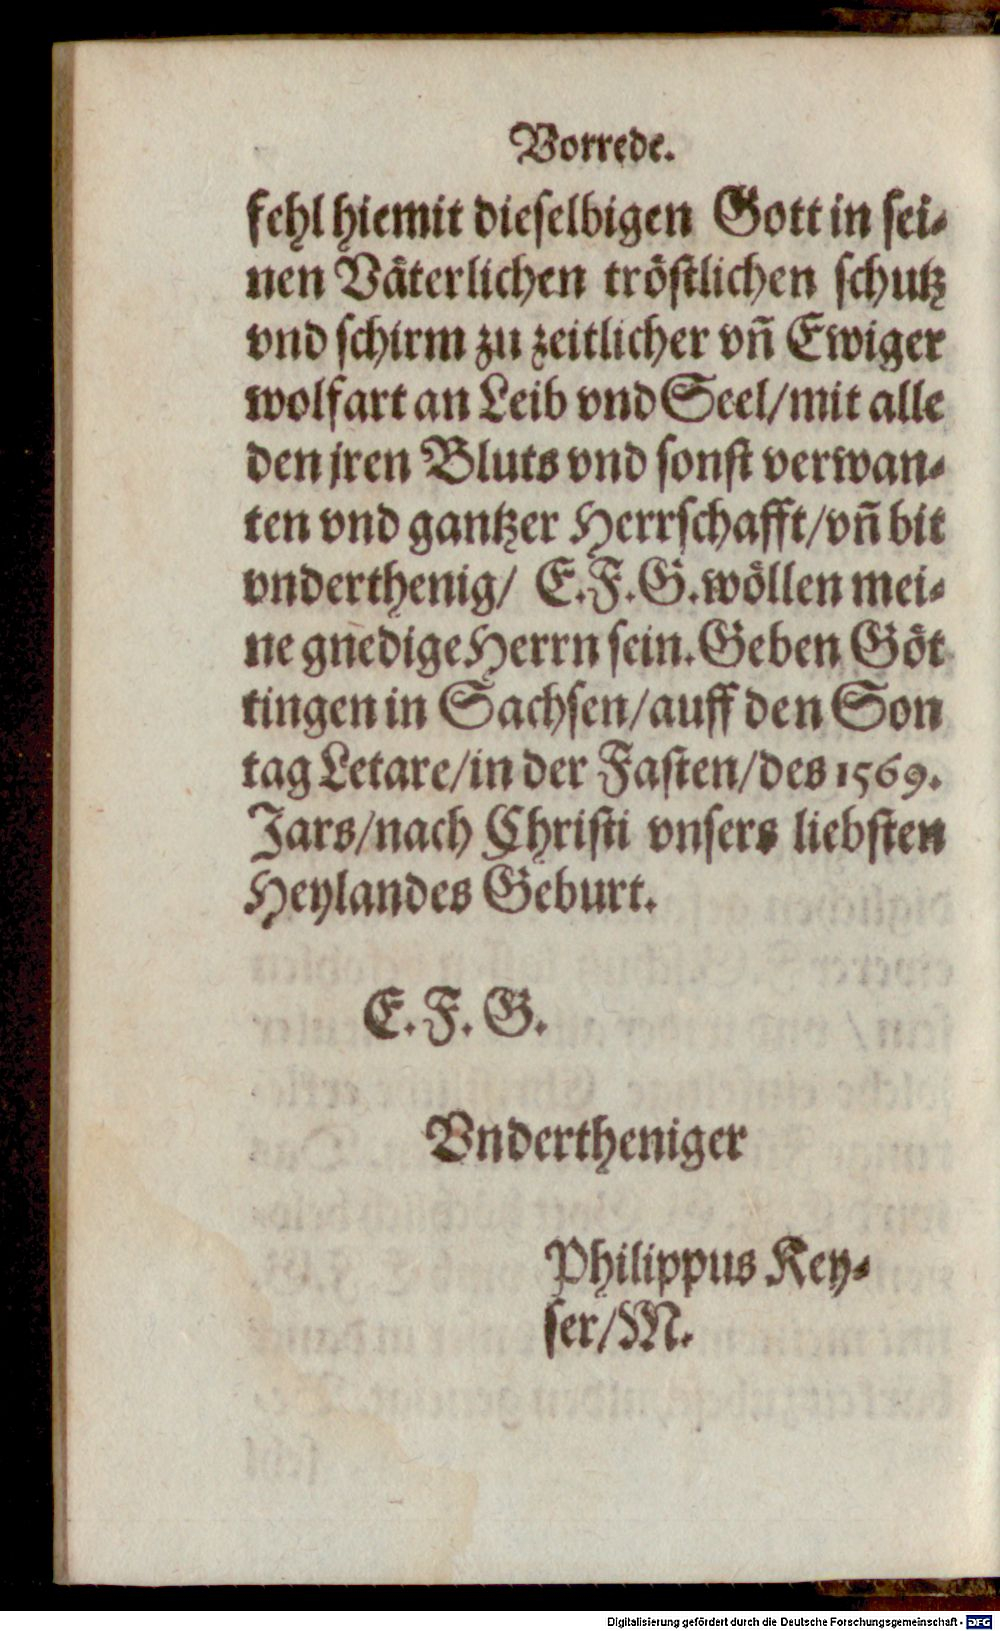 Vorrede.
fehl hiemit dieselbigen Gott in sei-
nen Väterlichen tröstlichen schutz
vnd schirm zu zeitlicher vñ Ewiger
wolfart an Leib vnd Seel/mit alle
den jren Bluts vnd sonst verwan-
ten vnd gantzer Herrschafft/vñ bit
vnderthenig/ E.F.G.wöllen mei-
ne gnedige Herrn sein.Geben Göt
tingen in Sachsen/auff den Son
tag Letare/in der Fasten/des 1569.
Jars/nach Christi vnsers liebsten
Heylandes Geburt.
E. F. G.
Vndertheniger
Philippus Key-
ser/M.
Digitalisierung gefördert durch die Deutsche Forschungsgemeinschaft - DFG